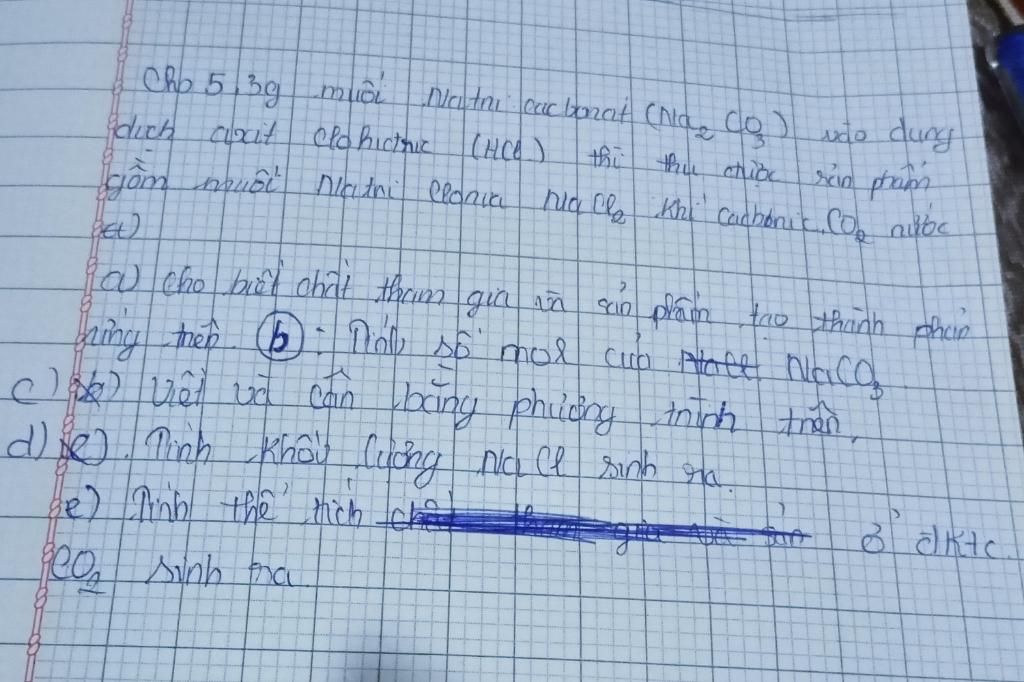 Cho 5,3g muối Natri cacbonat (Na2 CO3) vào dung
dịch axit clohiđric (HCl) thì thu được sản phẩm
gồm muối Natri clorua NaCl2 khí cacbonic CO2 nước
a) cho biết chất tham gia và sản phẩm tạo thành phản
ứng trên. b : Tính số mol của NaCO3
c) Viết và cân bằng phương trình trên.
d) Tính khối lượng NaCl sinh ra.
e) Tính thể tích ở đktc
CO2 sinh ra